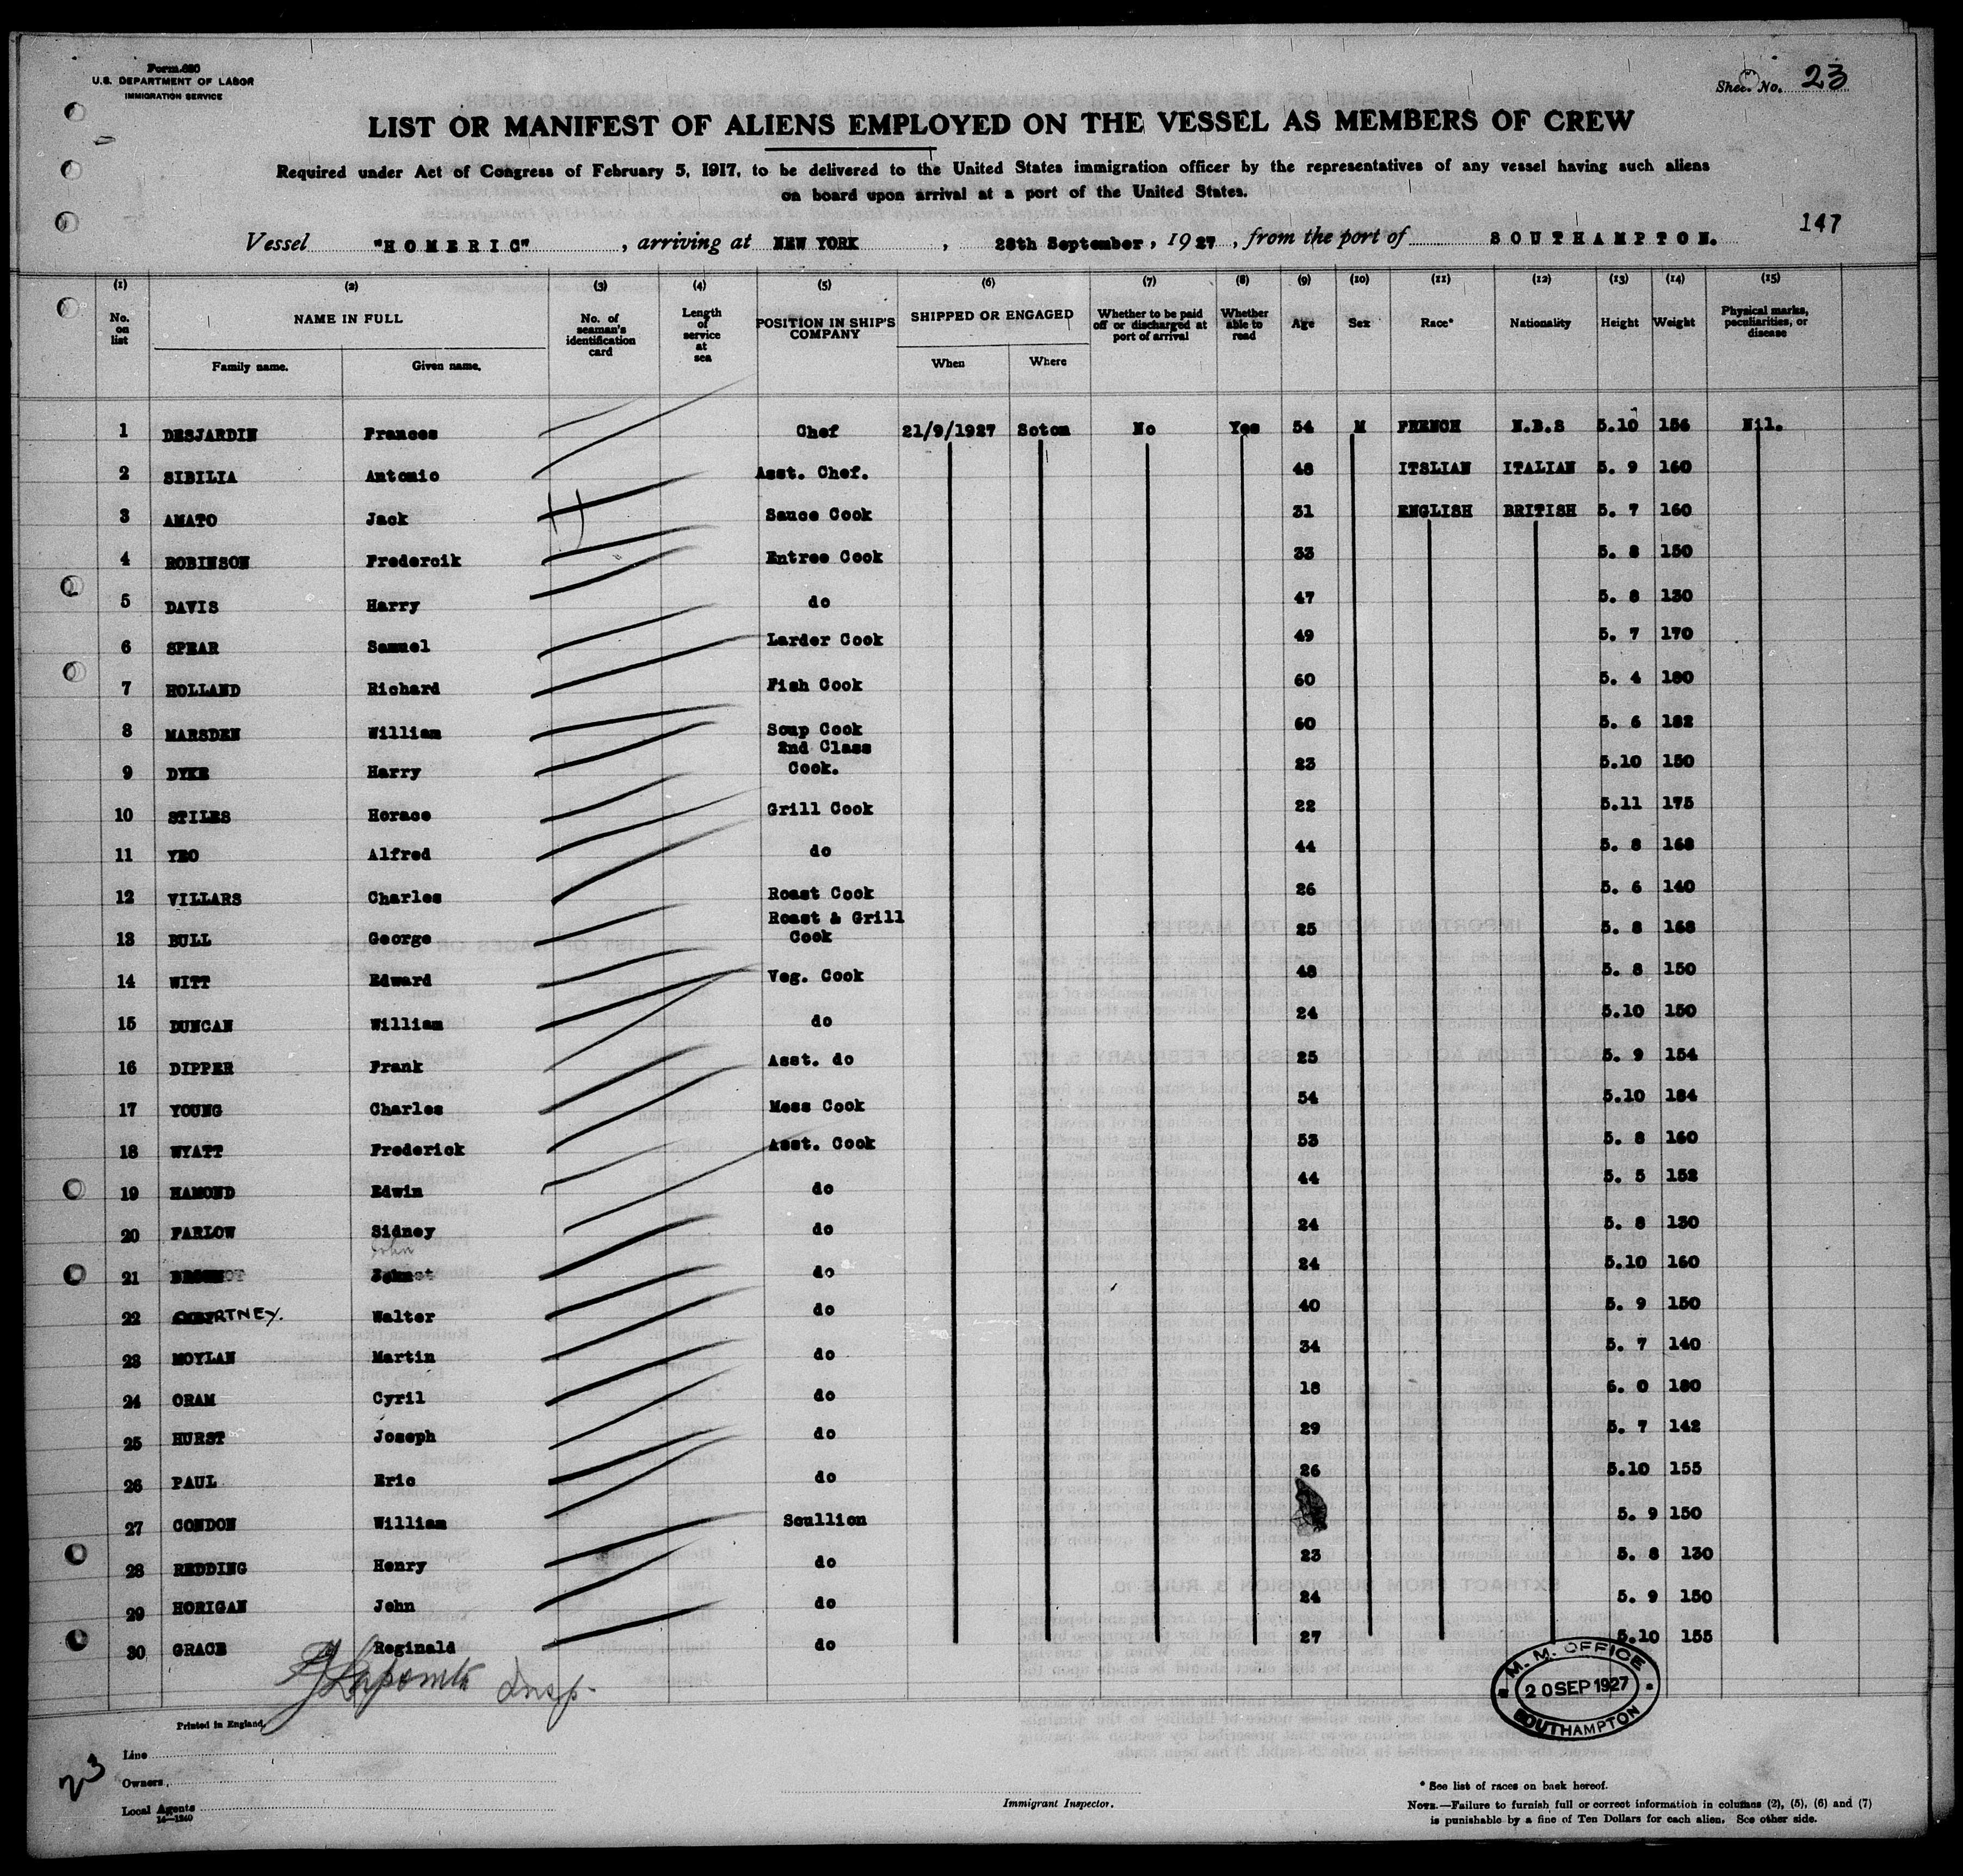 Form 680
U.S. DEPARTMENT OF LABOR
IMMIGRATION SERVICE
Sheet No. 23
LIST OR MANIFEST OF ALIENS EMPLOYED ON THE VESSEL AS MEMBERS OF CREW
Required under Act of Congress of February 5, 1917, to be delivered to the United States immigration officer by the representatives of any vessel having such aliens
on board upon arrival at a port of the United States.
147
Vessel "HOMERIC", arriving at NEW YORK, 28th September, 1927, from the port of SOUTHAMPTON.
(1) (2) (3) (4) (5) (6) (7) (8) (9) (10) (11) (12) (13) (14) (15)
No. on list NAME IN FULL Family name. Given name. No. of seaman's identification card Length of service at sea POSITION IN SHIP'S COMPANY SHIPPED OR ENGAGED When Where Whether to be paid off or discharged at port of arrival Whether able to read Age Sex Race* Nationality Height Weight Physical marks, peculiarities, or disease
1 DESJARDIN Frances Chef 21/9/1927 Soton No Yes 54 M FRENCH N.B.S 5.10 156 Nil.
2 SIBILIA Antonio Asst. Chef. 48 ITSLIAN ITALIAN 5. 9 160
3 AMATO Jack Sauce Cook 31 ENGLISH BRITISH 5. 7 160
4 ROBINSON Fredercik Entree Cook 33 5. 8 150
5 DAVIS Harry do 47 5. 8 130
6 SPEAR Samuel Larder Cook 49 5. 7 170
7 HOLLAND Richard Fish Cook 60 5. 4 180
8 MARSDEN William Soup Cook 60 5. 6 182
9 DYKE Harry 2nd Class Cook. 23 5.10 150
10 STILES Horace Grill Cook 22 5.11 175
11 YEO Alfred do 44 5. 8 168
12 VILLARS Charles Roast Cook 26 5. 6 140
13 BULL George Roast & Grill Cook 25 5. 8 168
14 WITT Edward Veg. Cook 48 5. 8 150
15 DUNCAN William do 24 5.10 150
16 DIPPER Frank Asst. do 25 5. 9 154
17 YOUNG Charles Mess Cook 54 5.10 184
18 WYATT Frederick Asst. Cook 53 5. 8 160
19 HAMOND Edwin do 44 5. 5 152
20 FARLOW Sidney do 24 5. 8 130
21 John do 24 5.10 160
22 RTNEY. Walter do 40 5. 9 150
23 MOYLAN Martin do 34 5. 7 140
24 ORAM Cyril do 18 6. 0 180
25 HURST Joseph do 29 5. 7 142
26 PAUL Eric do 26 5.10 155
27 CONDON William Scullion 5. 9 150
28 REDDING Henry do 23 5. 8 130
29 HORIGAN John do 24 5. 9 150
30 GRACE Reginald do 27 5.10 155
Insp.
M. M. OFFICE
20 SEP 1927
SOUTHAMPTON
Printed in England.
23
Line
Owners
Local Agents
14—1240
Immigrant Inspector.
* See list of races on back hereof.
NOTE.—Failure to furnish full or correct information in columns (2), (5), (6) and (7)
is punishable by a fine of Ten Dollars for each alien. See other side.